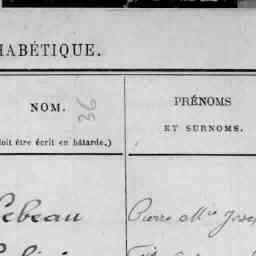 HABÉTIQUE.
NOM.
36
PRÉNOMS
ET SURNOMS.
doit être écrit en bâtarde.)
Lebeau
Pierre Mie Jose